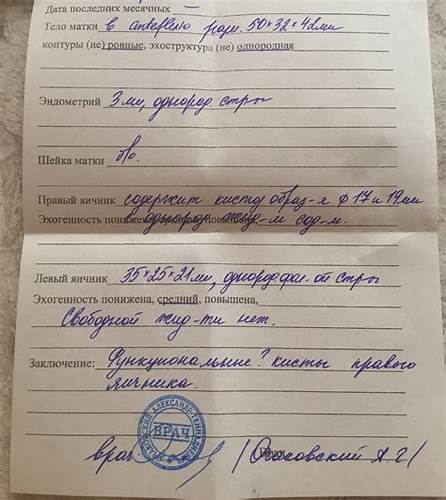 Дата последних месячных –
Тело матки в anteflexio разм. 50×32×42мм
контуры (не) ровные, эхоструктура (не) однородная
Эндометрий 3мм, однород. стр.
Шейка матки б/о.
Правый яичник содержит кистоз. образ-я ф 17 и 19мм
Эхогенность понижена,
с однород. жид-м сод-м.
Левый яичник 35×25×21мм, однород.
Эхогенность понижена, средний, повышена,
Свободной жид-ти нет.
Заключение: Функциональные? кисты правого
яичника.
ВРАЧ
врач